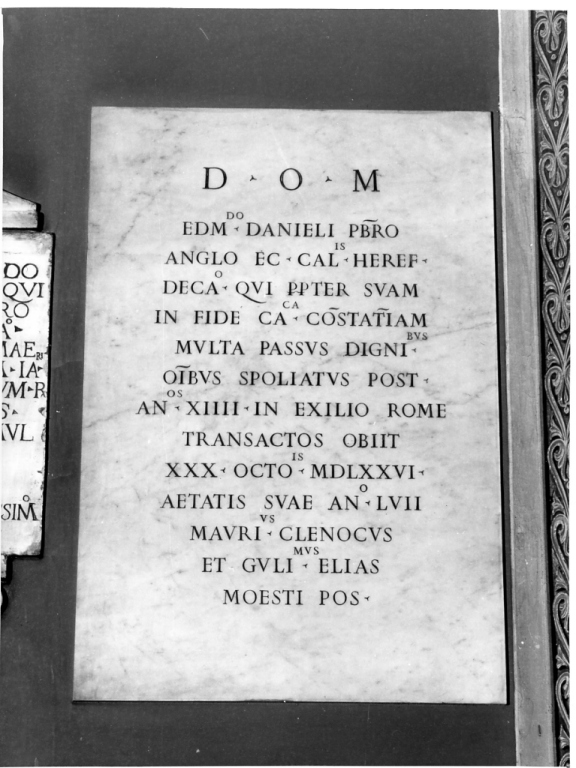 D · O · M
EDM^DO · DANIELI PB̃RO
ANGLO EC · CAL^IS · HEREF ·
DECA^O · QVI PꝐTER SVAM
IN FIDE CA^CA · CÕSTATĨAM
MVLTA PASSVS DIGNI^BVS ·
OĨBVS SPOLIATVS POST ·
AN^OS · XIIII · IN EXILIO ROME
TRANSACTOS OBIIT
XXX · OCTO^IS · MDLXXVI ·
AETATIS SVAE AN^O · LVII
MAVRI^VS · CLENOCVS
ET GVLI^MVS · ELIAS
MOESTI POS ·
DO
QVI
RO
MAE
IA
VM · R
S ·
VL
SIM̊